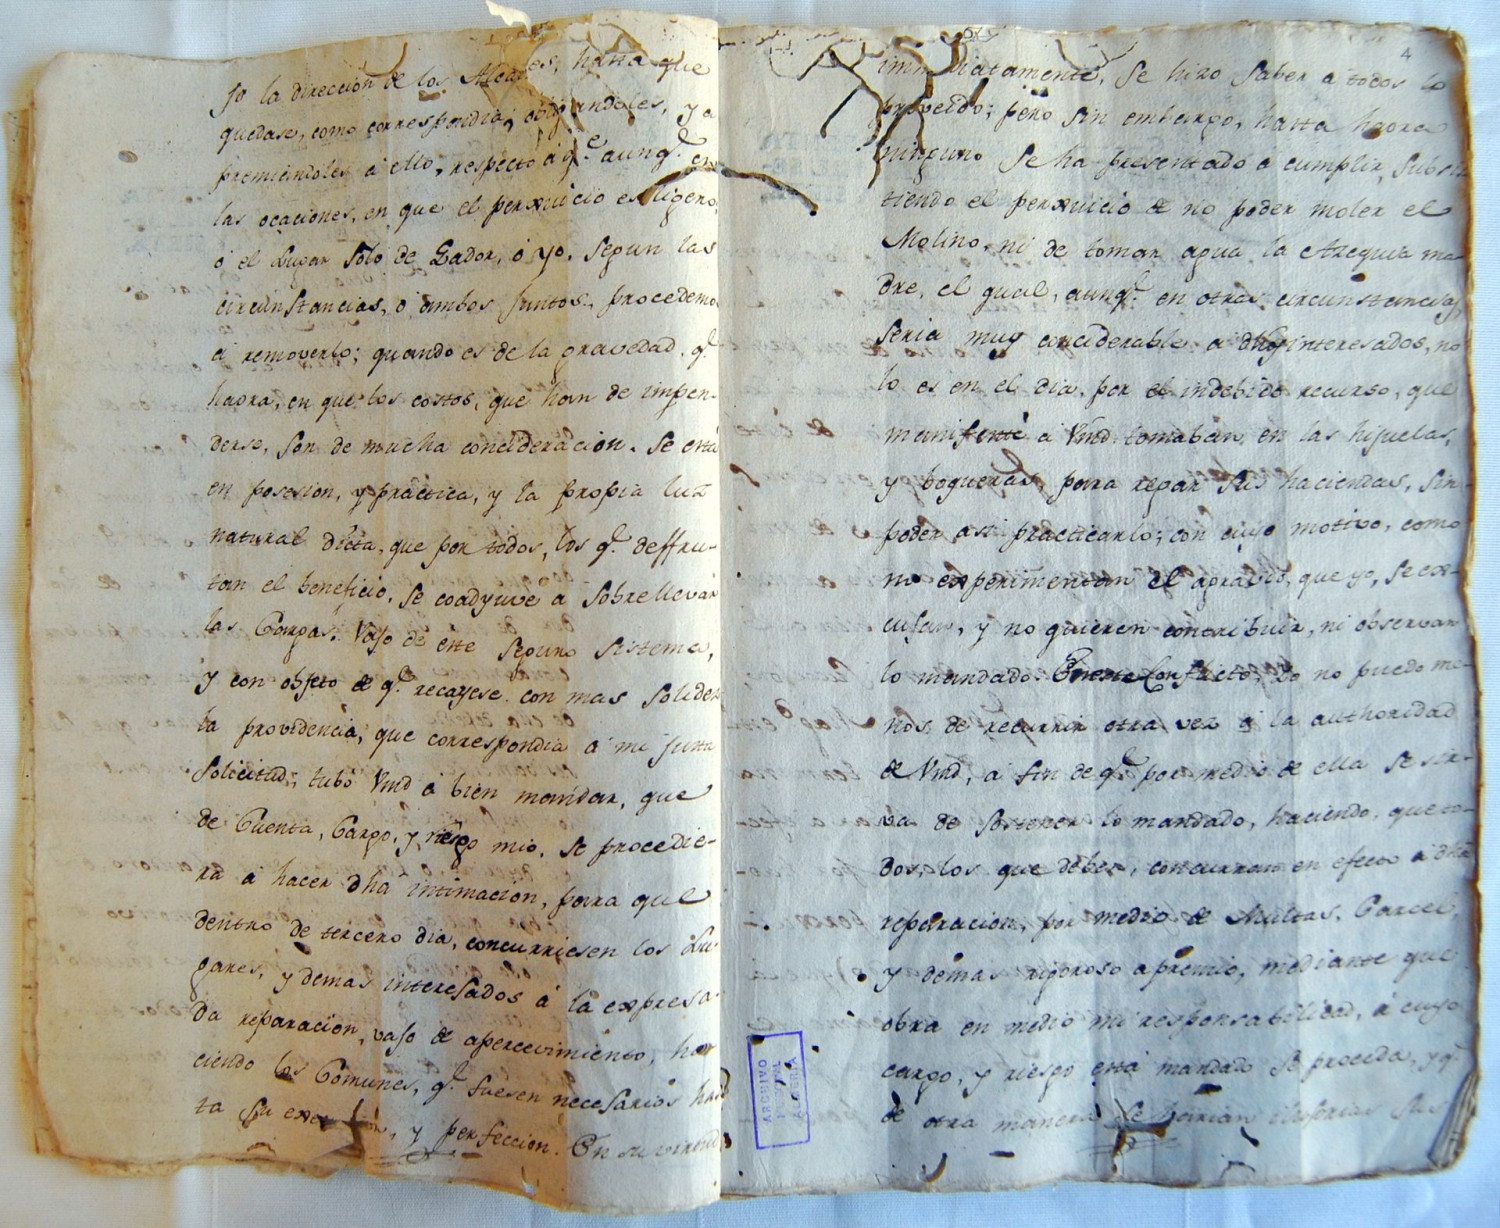 jo la direccion de los Alcaldes, hasta que
quedase, como correspondia, obligandoles, y a
premiandoles á ello, respecto á q.e aunq.e en
las ocaciones, en que el perxuicio es ligero,
ó el Lugar solo de Gador, ó yo, segun las
circunstancias, ó ambos juntos, procedemos
á removerlo; quando es de la gravedad, q.e
haora, en que los costos, que han de impen-
derse, son de mucha concideracion. Se está
en posesion, y practica, y la propia luz
natural dicta, que por todos, los q.e deffru-
tan el beneficio, se coadyuve a sobrellevar
las Cargas. Vajo de este seguro sistema,
y con objeto de q.e recayese con mas solidez
la providencia, que correspondia á mi justa
solicitud; tubó Vmd á bien mandar, que
de Cuenta, Cargo, y riesgo mio, se procedie-
ra á hacer dha intimacion, para que
dentro de tercero dia, concurriesen los Lu-
gares, y demas interesados á la expresa-
da reparacion, vajo de apercevimiento, ha-
ciendo los Comunes, q.e fuesen necesarios has
ta su execucion, y perfeccion. En su virtud
4
immediatamente, se hizo saber a todos lo
proveido; pero sin embargo, hasta haora
ninguno se ha presentado á cumplir, subsis
tiendo el perxuicio de no poder moler el
Molino, ni de tomar agua la Azequia ma-
dre, el qual, aunq.e en otras circunstancias,
seria muy conciderable á dhos interesados, no
lo es en el dia, por el indebido recurso, que
manifesté á Vmd tomaban en las hijuelas,
y boqueras, para regar sus haciendas, sin
poder asi practicarlo; con cuyo motivo, como
no experimentan el agravio, que yo, se ex-
cusan, y no quieren contribuir, ni observar
lo mandado. En este Conflicto, Yo no puedo me-
nos de recurrir otra vez á la authoridad
de Vmd, á fin de q.e por medio de ella se sir-
va de sostener lo mandado, haciendo, que to-
dos, los que deben, concurran en efecto á dha
reparacion, por medio de Multas, Carcel,
y demas rigoroso apremio, mediante que
obra en medio mi responsabilidad, á cuyo
cargo, y riesgo está mandado se proceda, y q.e
de otra manera se Derian ilusorias sus
ARCHIVO
ALMERIA